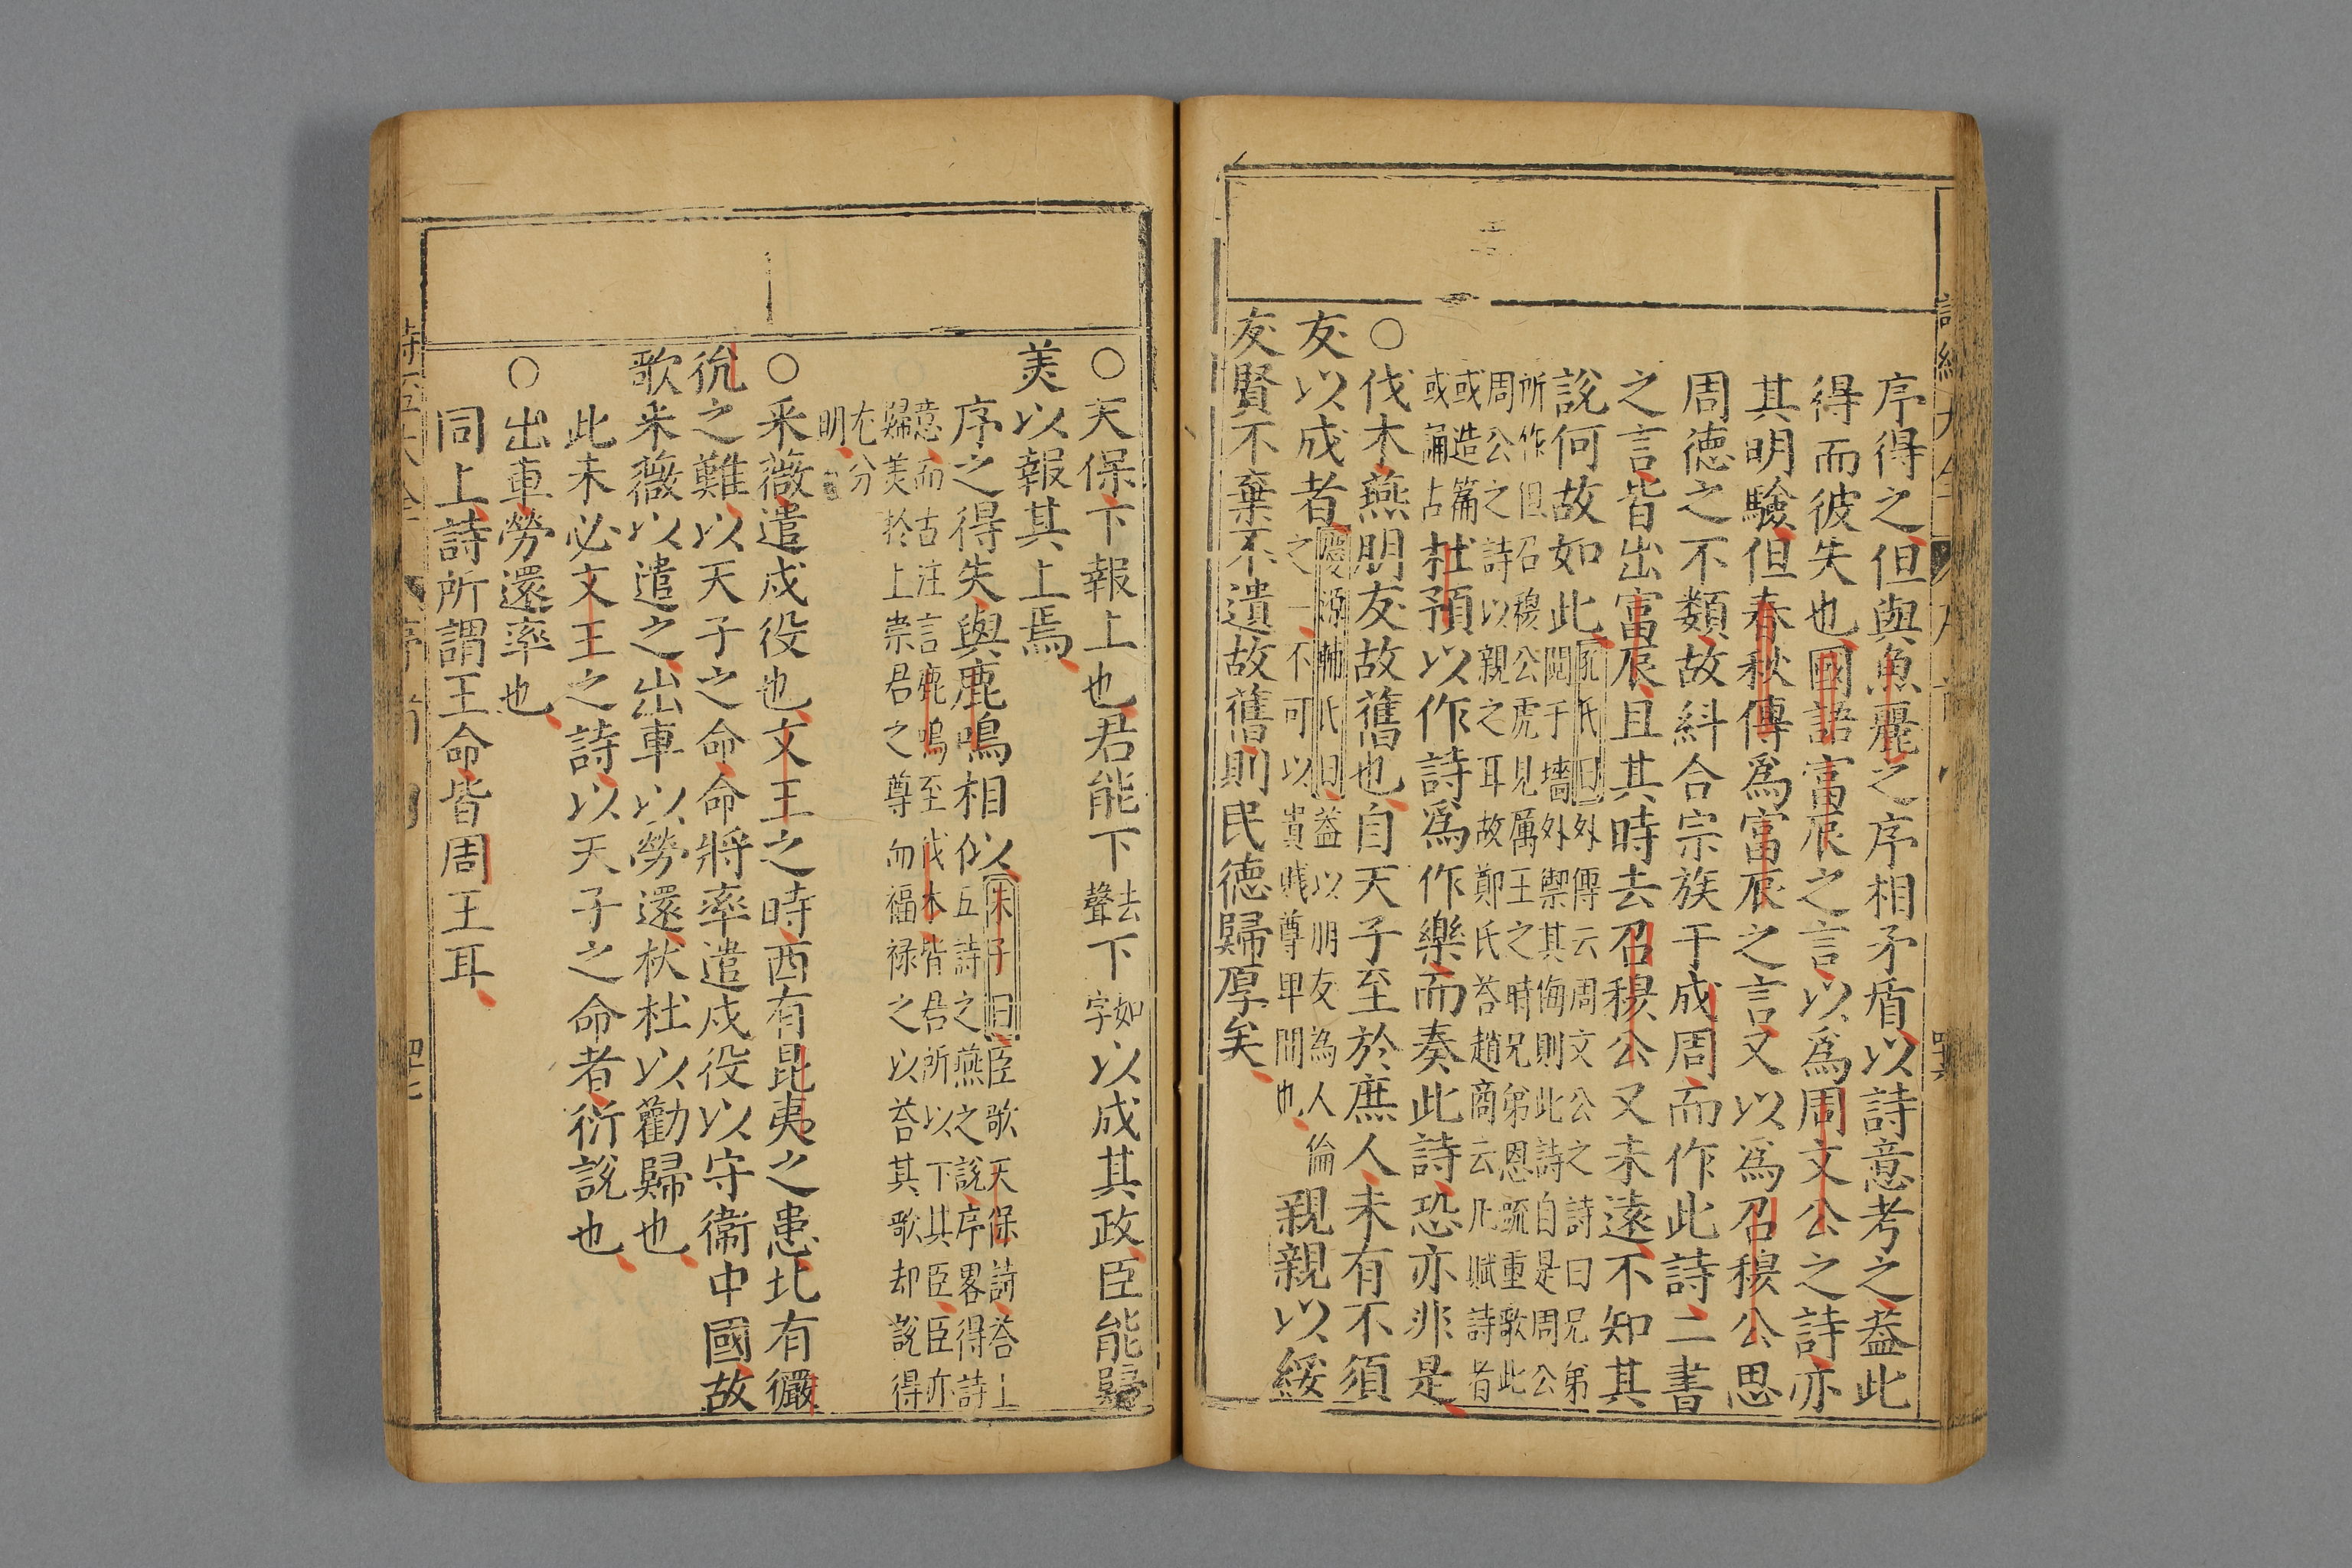 序得之但與魚麗之序相矛盾以詩意考之蓋此
得而彼失也國語富辰之言以爲周文公之詩亦
其明驗但春秋傳爲富辰之言又以爲召穆公思
周德之不類故糾合宗族于成周而作此詩二書
之言皆出富辰且其時去召穆公又未遠不知其
說何故如此
孔氏曰外傳云周文公之詩曰兄弟
鬩于墻外禦其侮則此詩自是周公
所作但召穆公虎見厲王之時兄弟恩疏重歌此
周公之詩以親之耳故鄭氏荅趙商云凡賦詩者
或造篇
或誦古
杜預以作詩爲作樂而奏此詩恐亦非是
○伐木燕朋友故舊也自天子至於庶人未有不須
友以成者
慶源輔氏曰蓋以朋友為人倫
之一不可以貴賤尊卑間也
親親以綏
友賢不棄不遺故舊則民德歸厚矣
○天保下報上也君能下
去
聲
下
如
字
以成其政臣能歸
美以報其上焉
序之得失與鹿鳴相似
朱子曰臣歌天保詩荅上
五詩之燕之說序畧得詩
意而古注言鹿鳴至伐木皆君所以下其臣臣亦
歸美於上崇君之尊而福祿之以荅其歌却說得
尤分
明
○采薇遣戍役也文王之時西有昆夷之患北有玁
狁之難以天子之命命將率遣戍役以守衞中國故
歌采薇以遣之出車以勞還杕杜以勸歸也
此未必文王之詩以天子之命者衍說也
○出車勞還率也
同上詩所謂王命皆周王耳